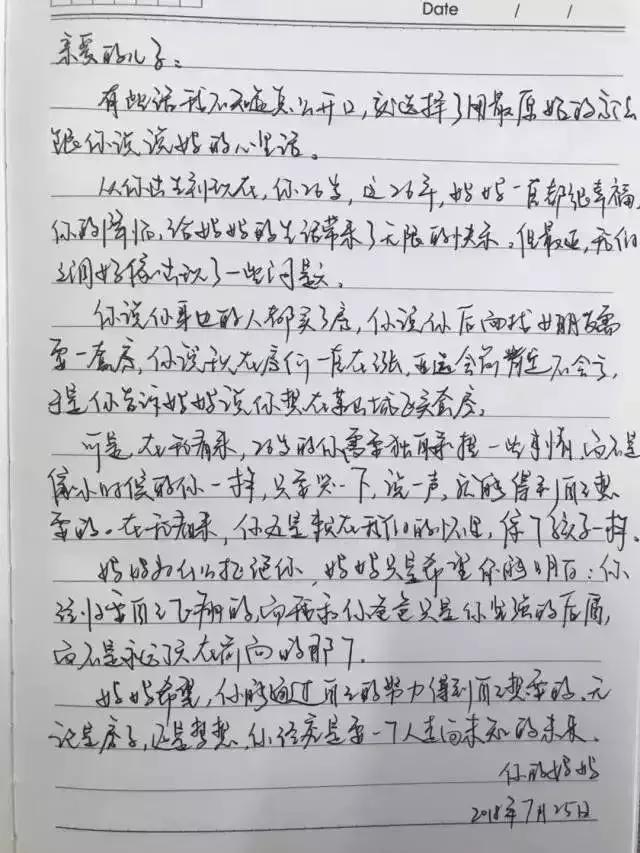 Date / /
亲爱的儿子：
有些话我不知道怎么开口，就选择了用最原始的方法
跟你说说妈的心里话。
从你出生到现在，你26岁，这26年，妈妈一直都很幸福，
你的降临，给妈妈的生活带来了无限的快乐。但最近，我们
之间好像出现了一些问题。
你说你身边的人都买了房，你说你后面找女朋友需
要一套房，你说现在房价一直在涨，亚运会前肯定不会亏，
于是你告诉妈妈说你想在城买套房。
可是，在我看来，26岁的你需要独自承担一些事情，而不是
像小时候的你一样，只要哭一下，说一声，就能得到自己想
要的。在我看来，你还是躲在我们的怀里，像个孩子一样。
妈妈为什么拒绝你，妈妈只是希望你能明白：你
该归要自己飞翔的，而我和你爸爸只是你坚强的后盾，
而不是永远顶在前面的那个。
妈妈希望，你能通过自己的努力得到自己想要的，无
论是房子，还是梦想，你终究是要一个人走向未知的未来。
你的妈妈
2018年7月25日